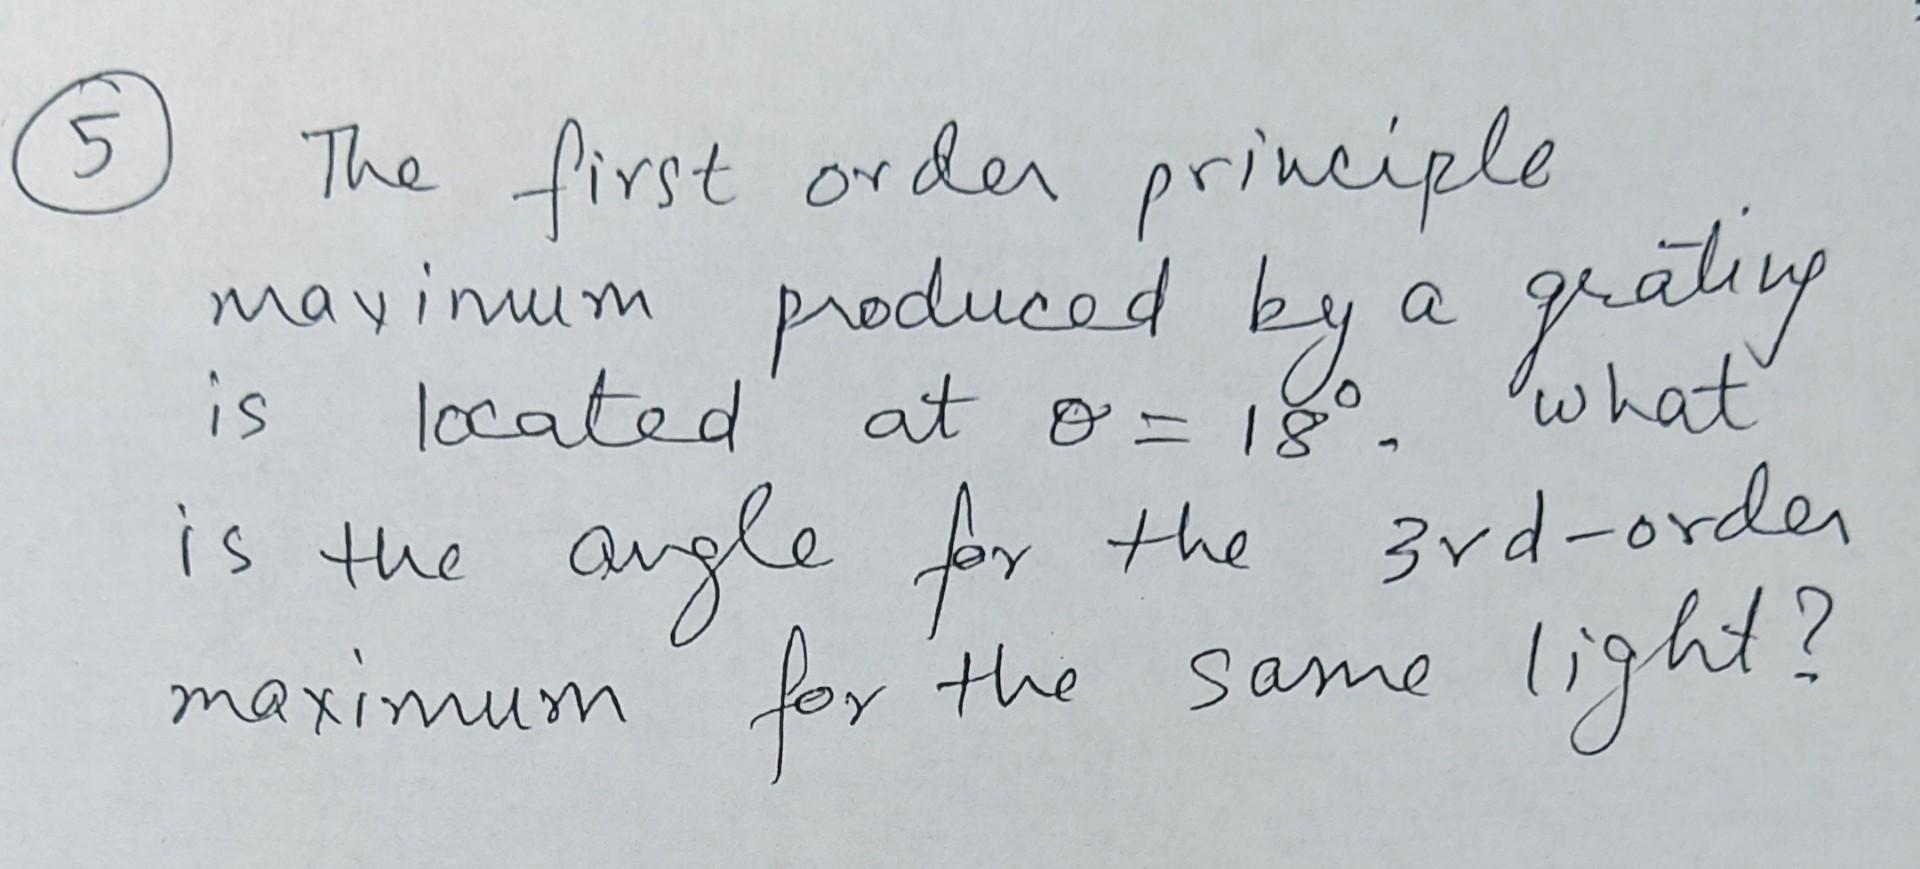 5 The first order principle
maximum produced by a grating
is located at θ = 18°. what
is the angle for the 3rd-order
maximum for the same light?